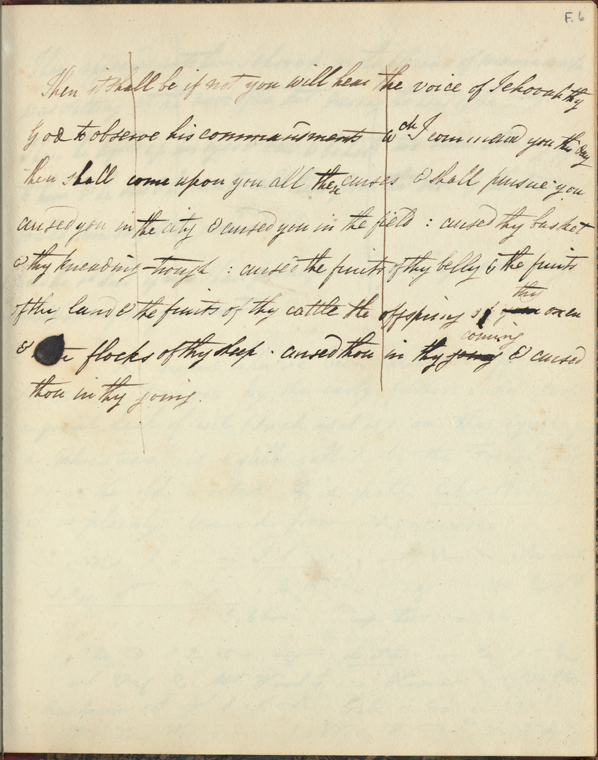 F. 6
Then it shall be if not you will hear the voice of Jehovah thy
God to observe his commandments wch I command you this day
then shall come upon you all these curses & shall pursue you
cursed you in the city & cursed you in the field : cursed thy basket
& thy kneading-trough : cursed the fruits of thy belly & the fruits
of thy land & the fruits of thy cattle the offspring of thy oxen
& flocks of thy sheep . cursed thou in thy going coming & cursed
thou in thy going .